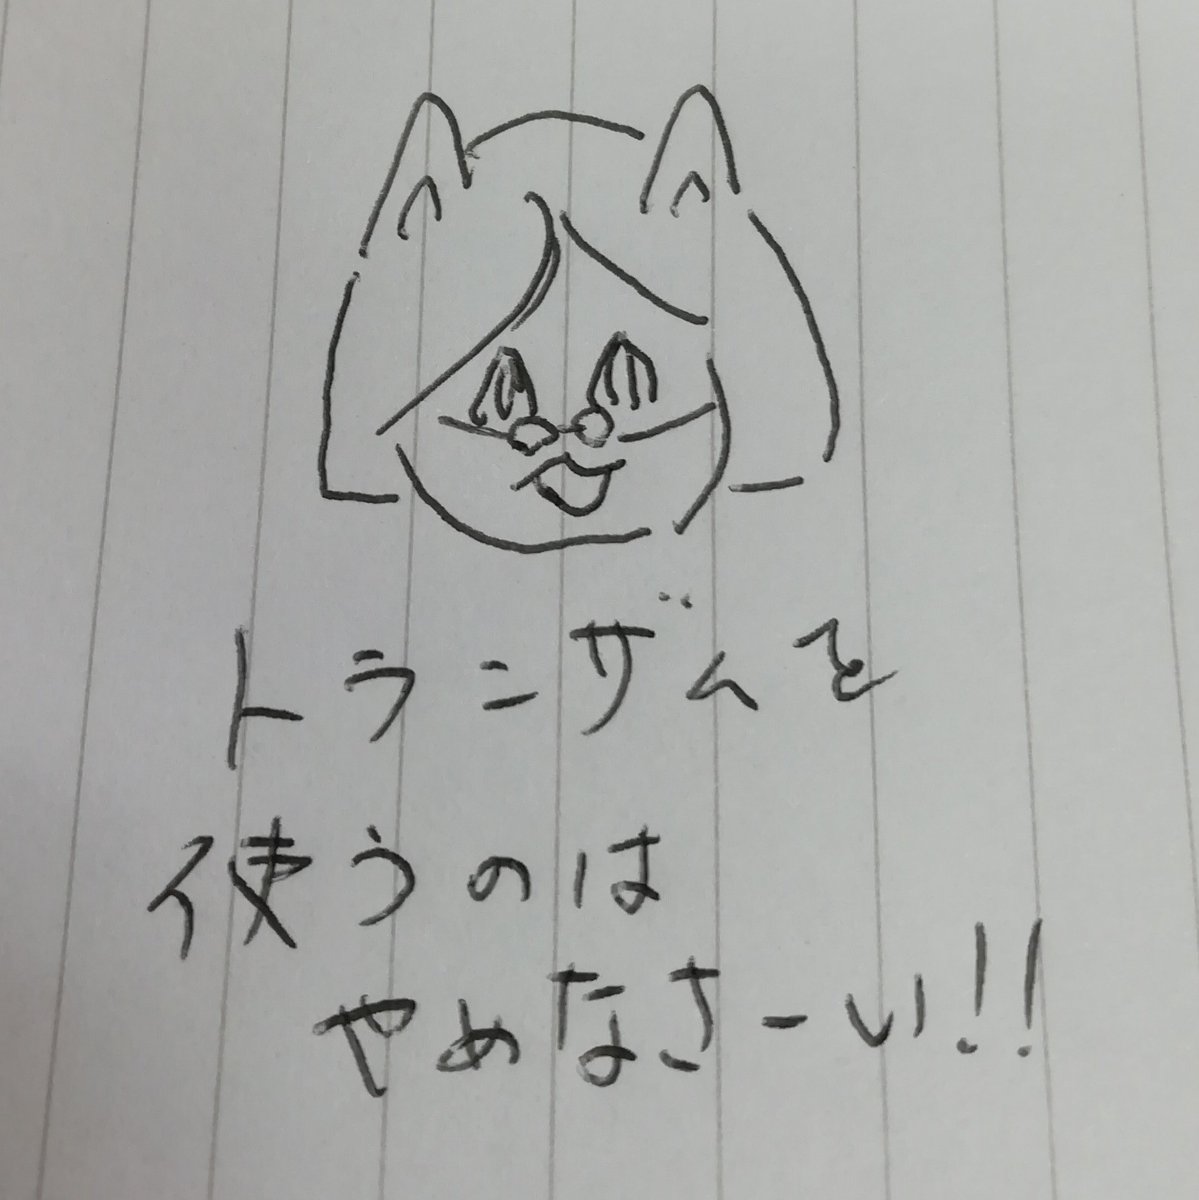 トランザムを
使うのは
やめなさーい!!